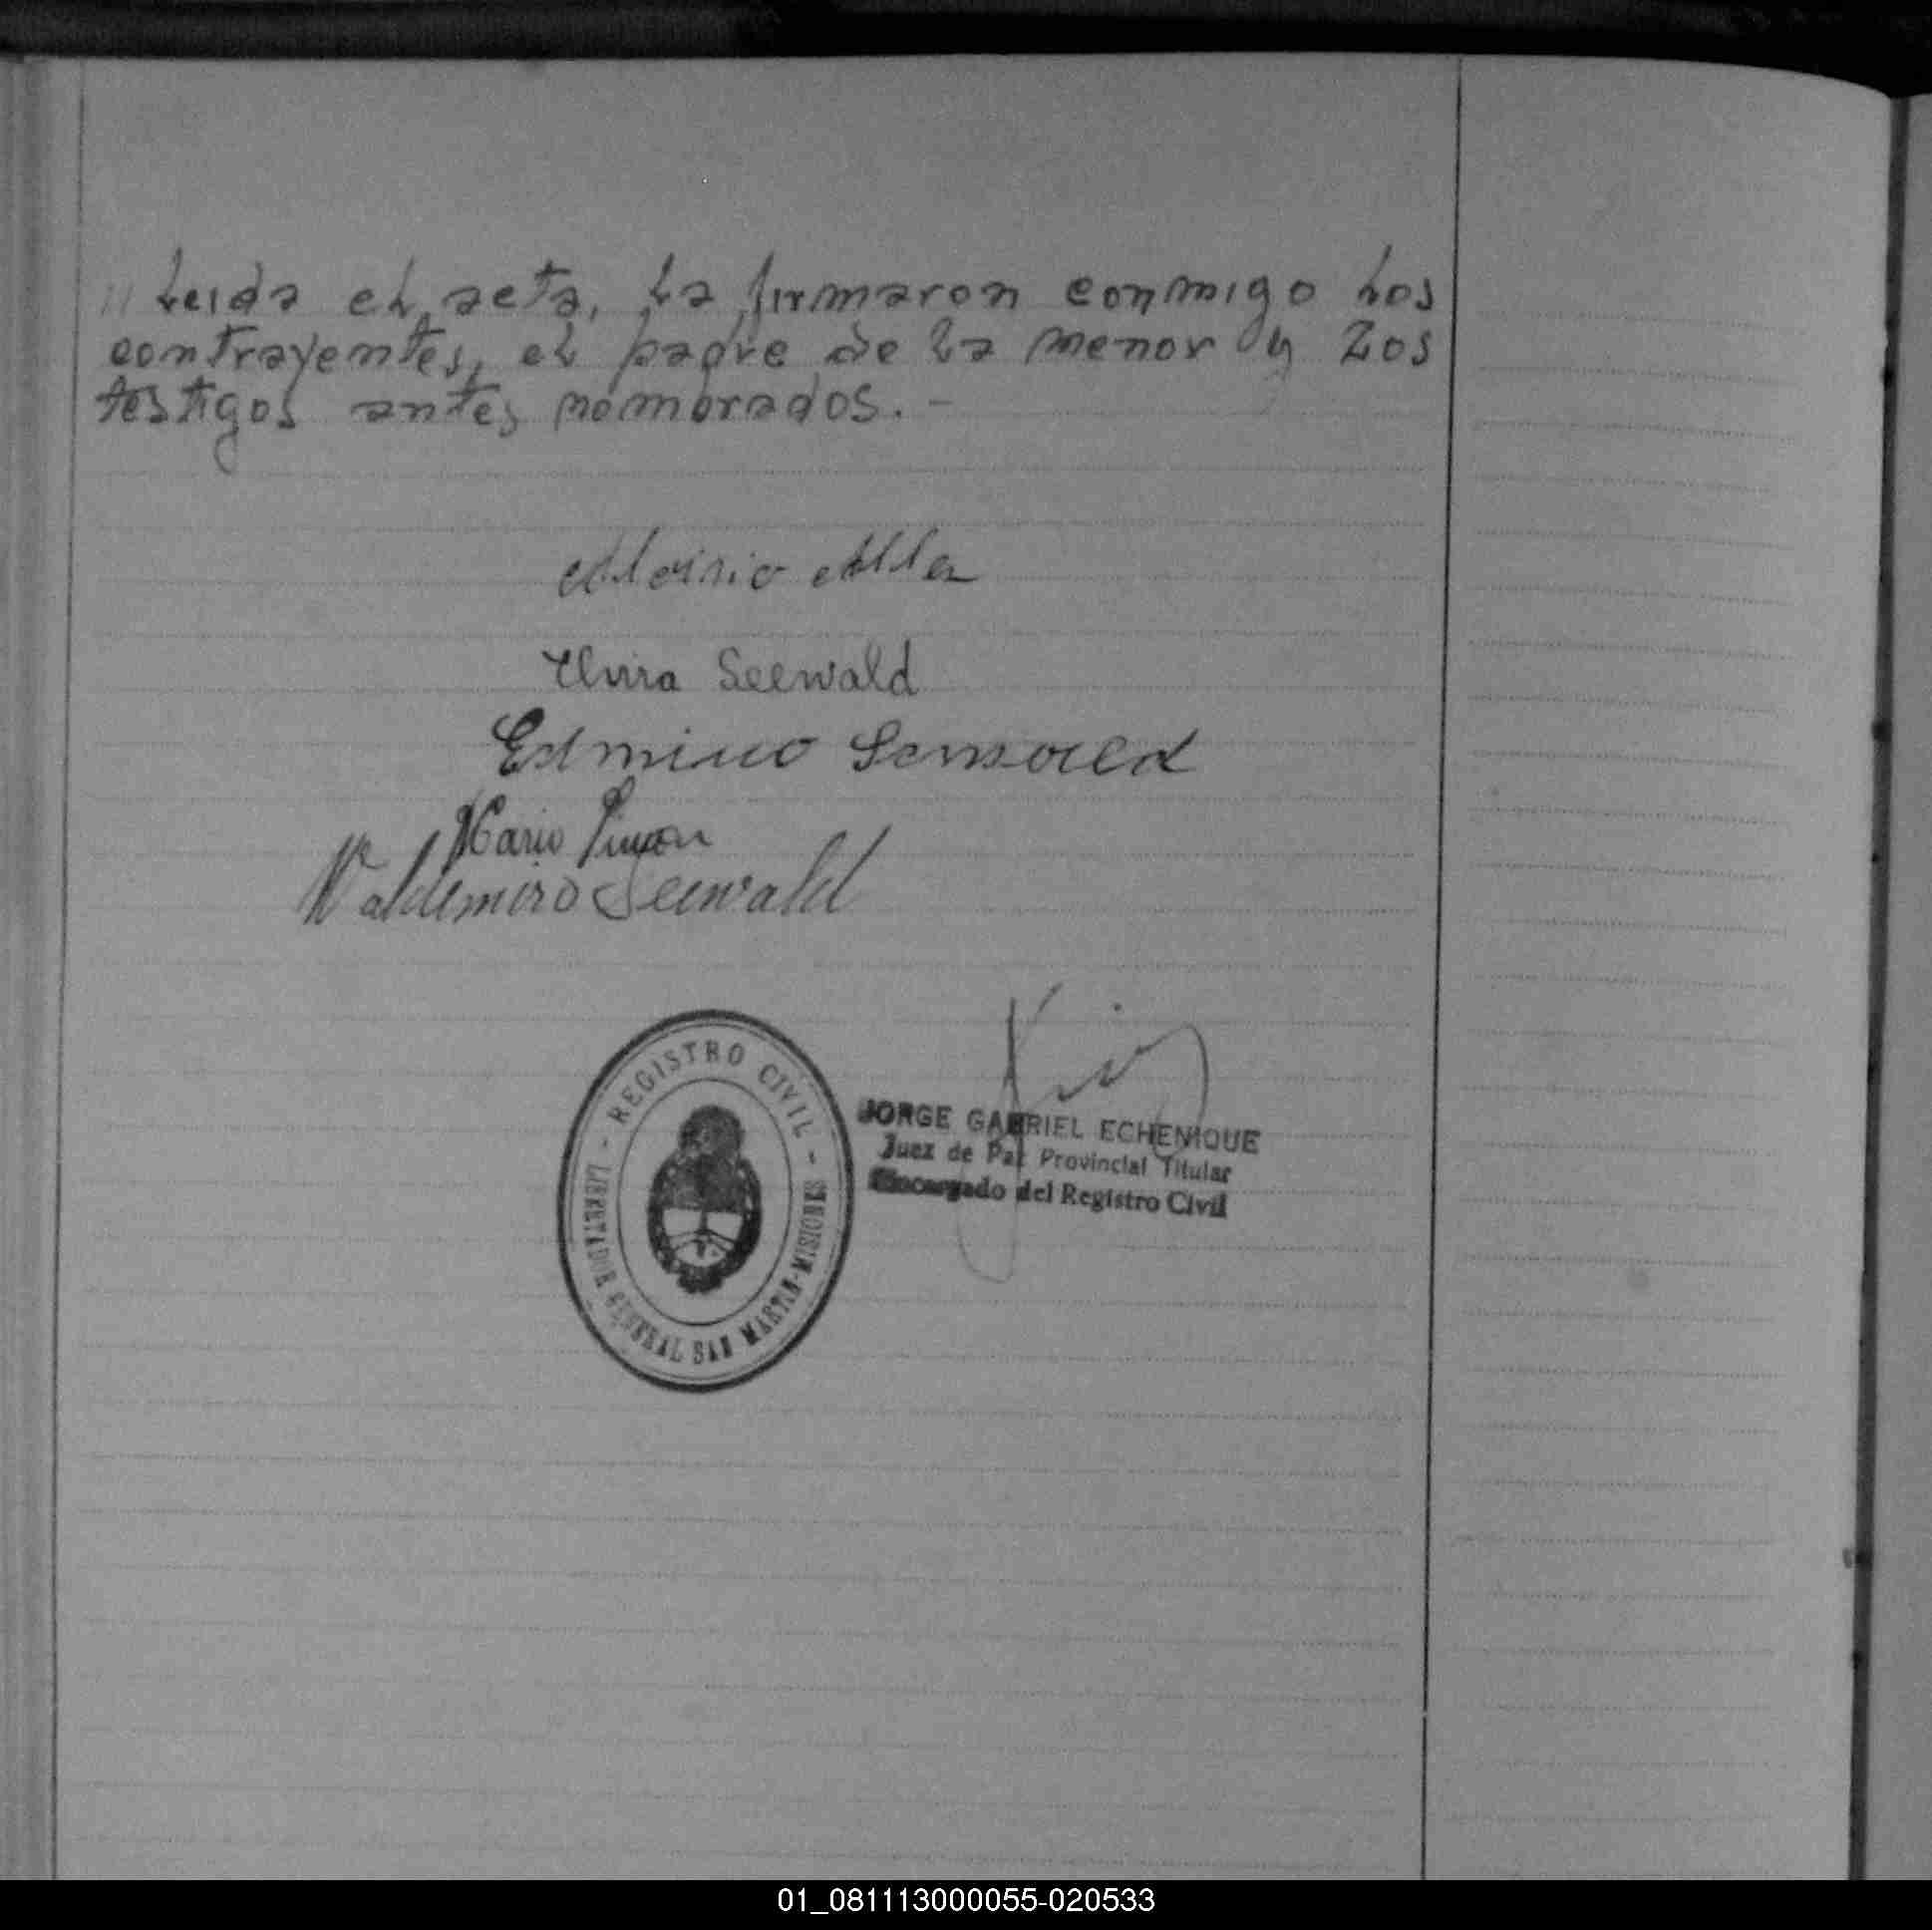 // Leida el acta, la firmaron conmigo los
contrayentes, el padre de la menor y los
testigos antes nombrados. -
Aloisio
Elvira Seewald
Edmino
Mario
Valdemiro Seewald
REGISTRO CIVIL - LIBERTADOR GENERAL SAN MARTIN-MISIONES -
JORGE GABRIEL ECHENIQUE
Juez de Paz Provincial Titular
Encargado del Registro Civil
01_081113000055-020533